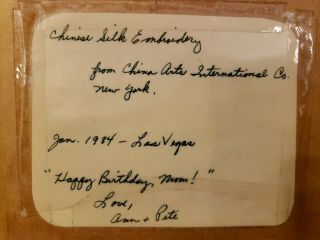 Chinese Silk Embroidery
from China Arts International Co.
New York.
Jan. 1984 - Las Vegas
"Happy Birthday, Mom!"
Love,
Ann + Pete